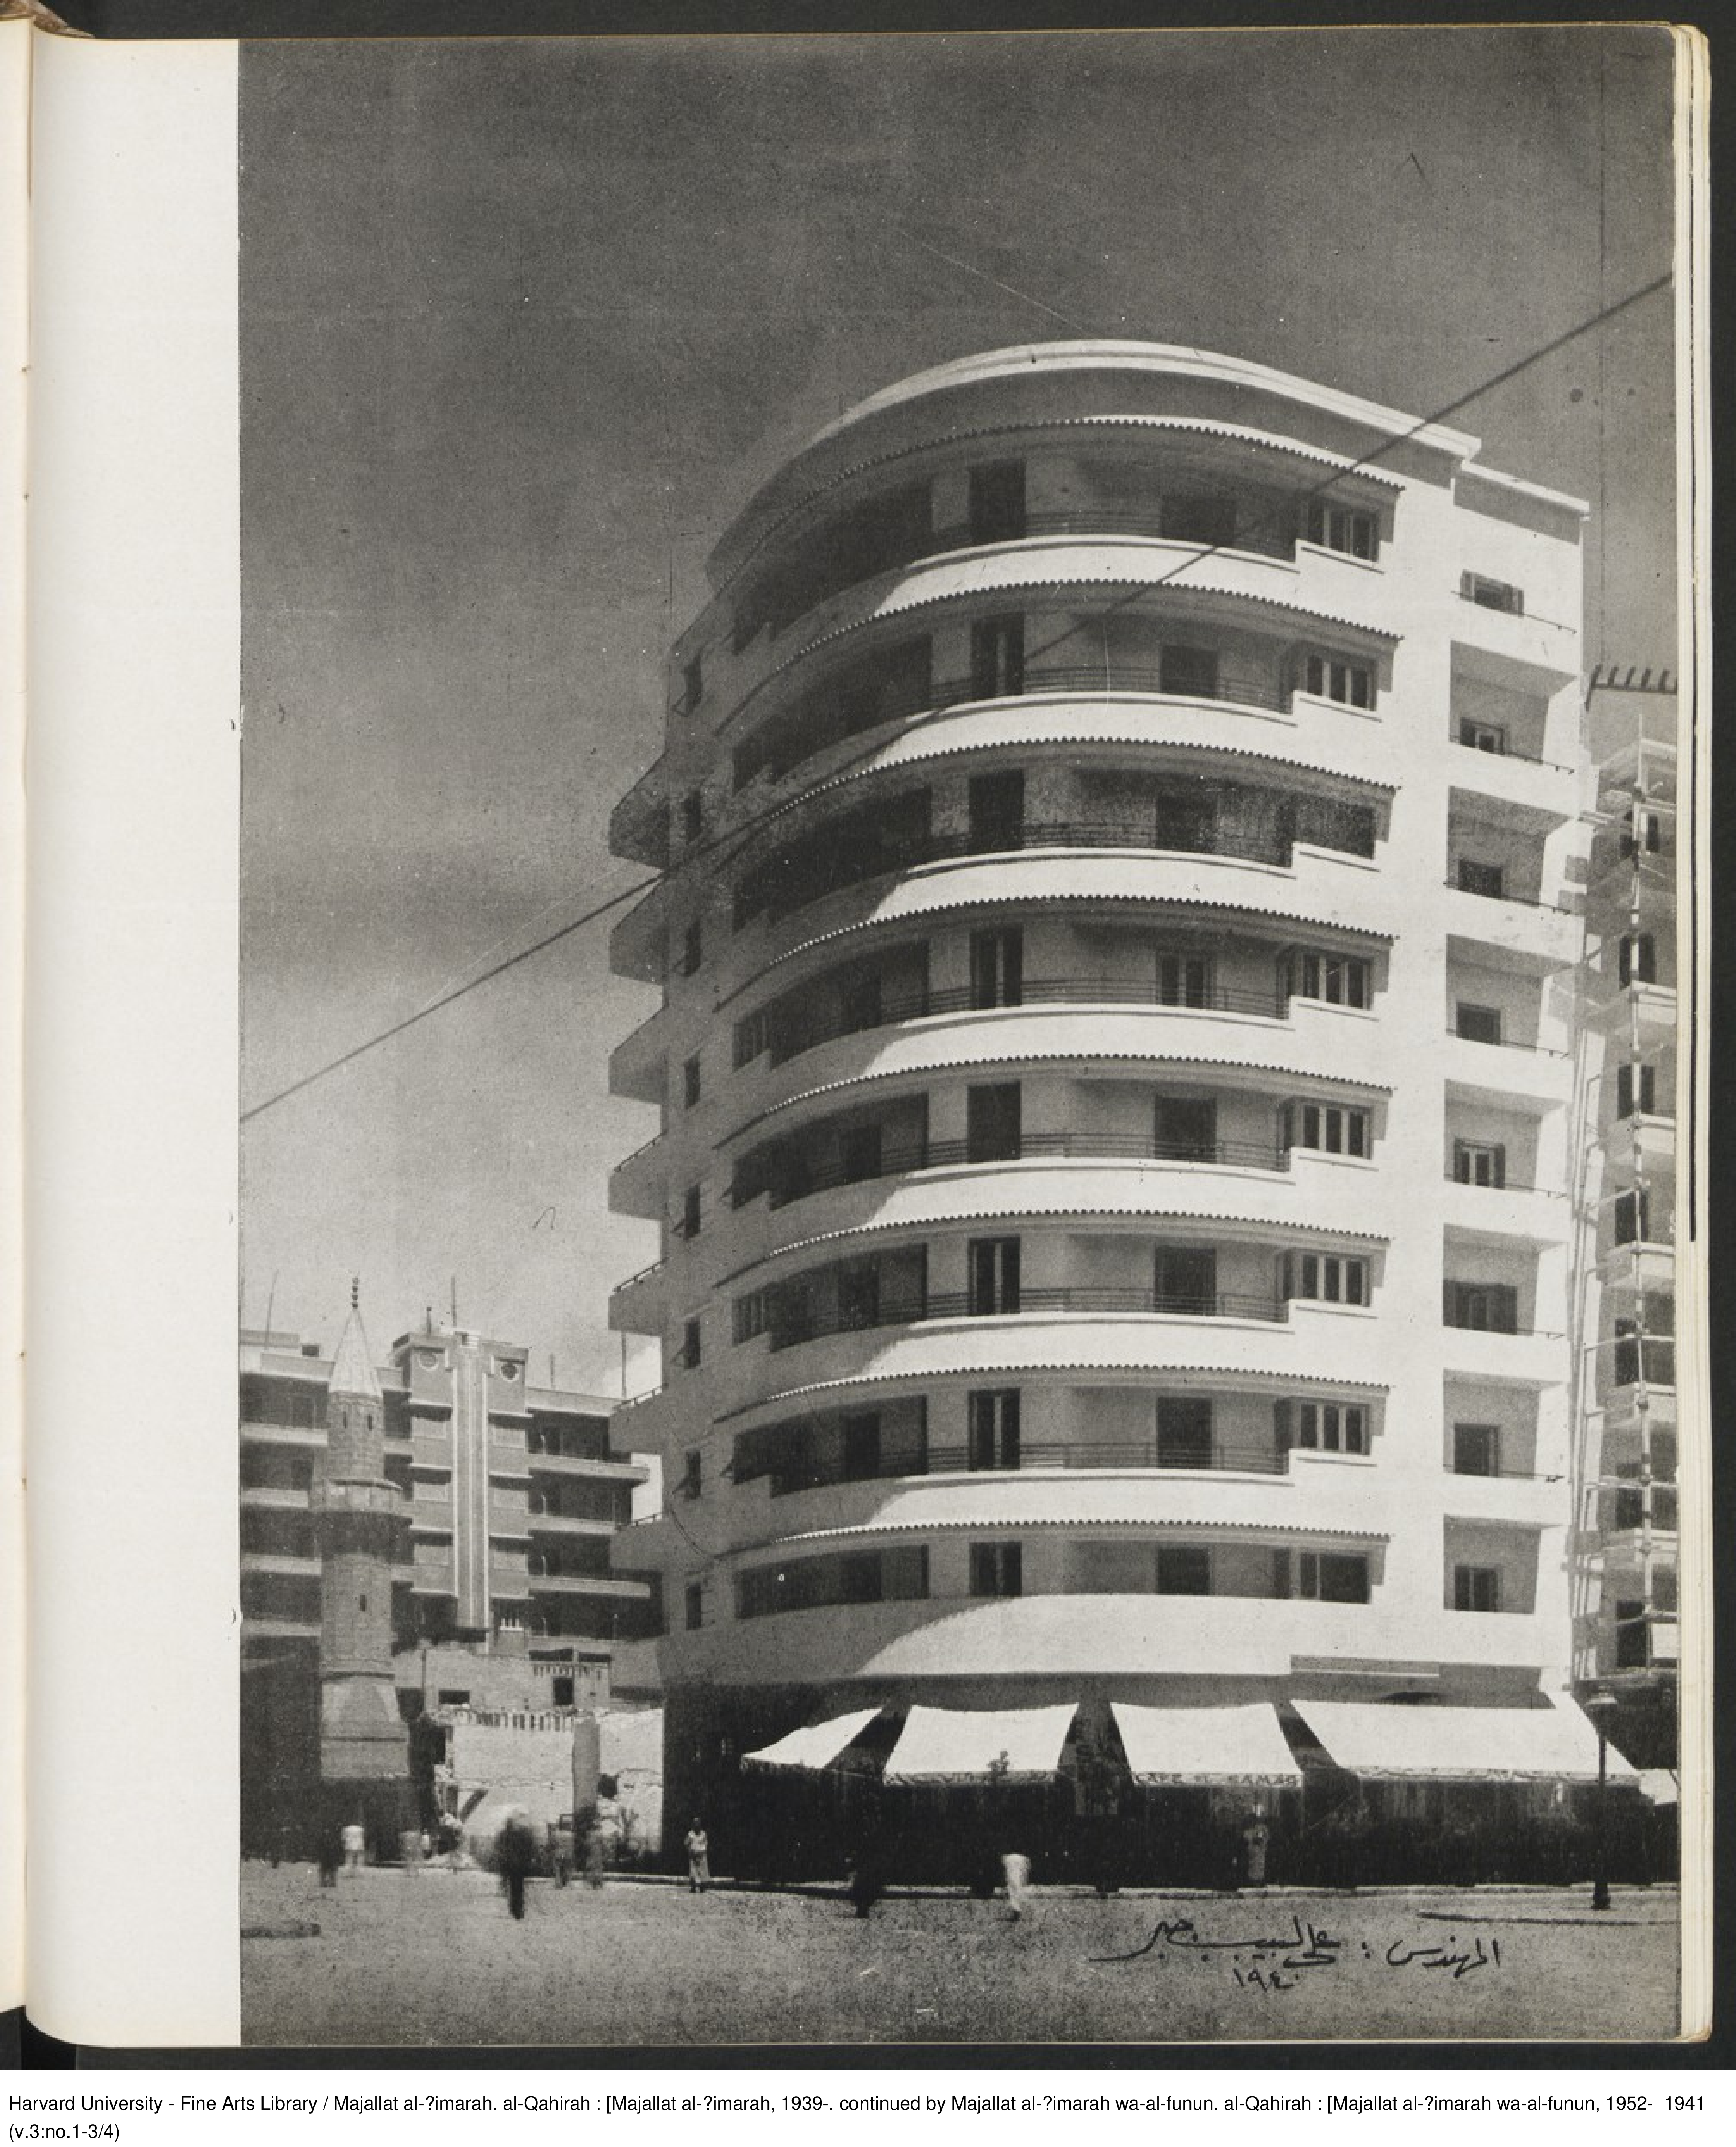 CAFE EL SAMAR
المهندس : على لبيب جبر
١٩٤٠
Harvard University - Fine Arts Library / Majallat al-?imarah. al-Qahirah : [Majallat al-?imarah, 1939-. continued by Majallat al-?imarah wa-al-funun. al-Qahirah : [Majallat al-?imarah wa-al-funun, 1952- 1941
(v.3:no.1-3/4)